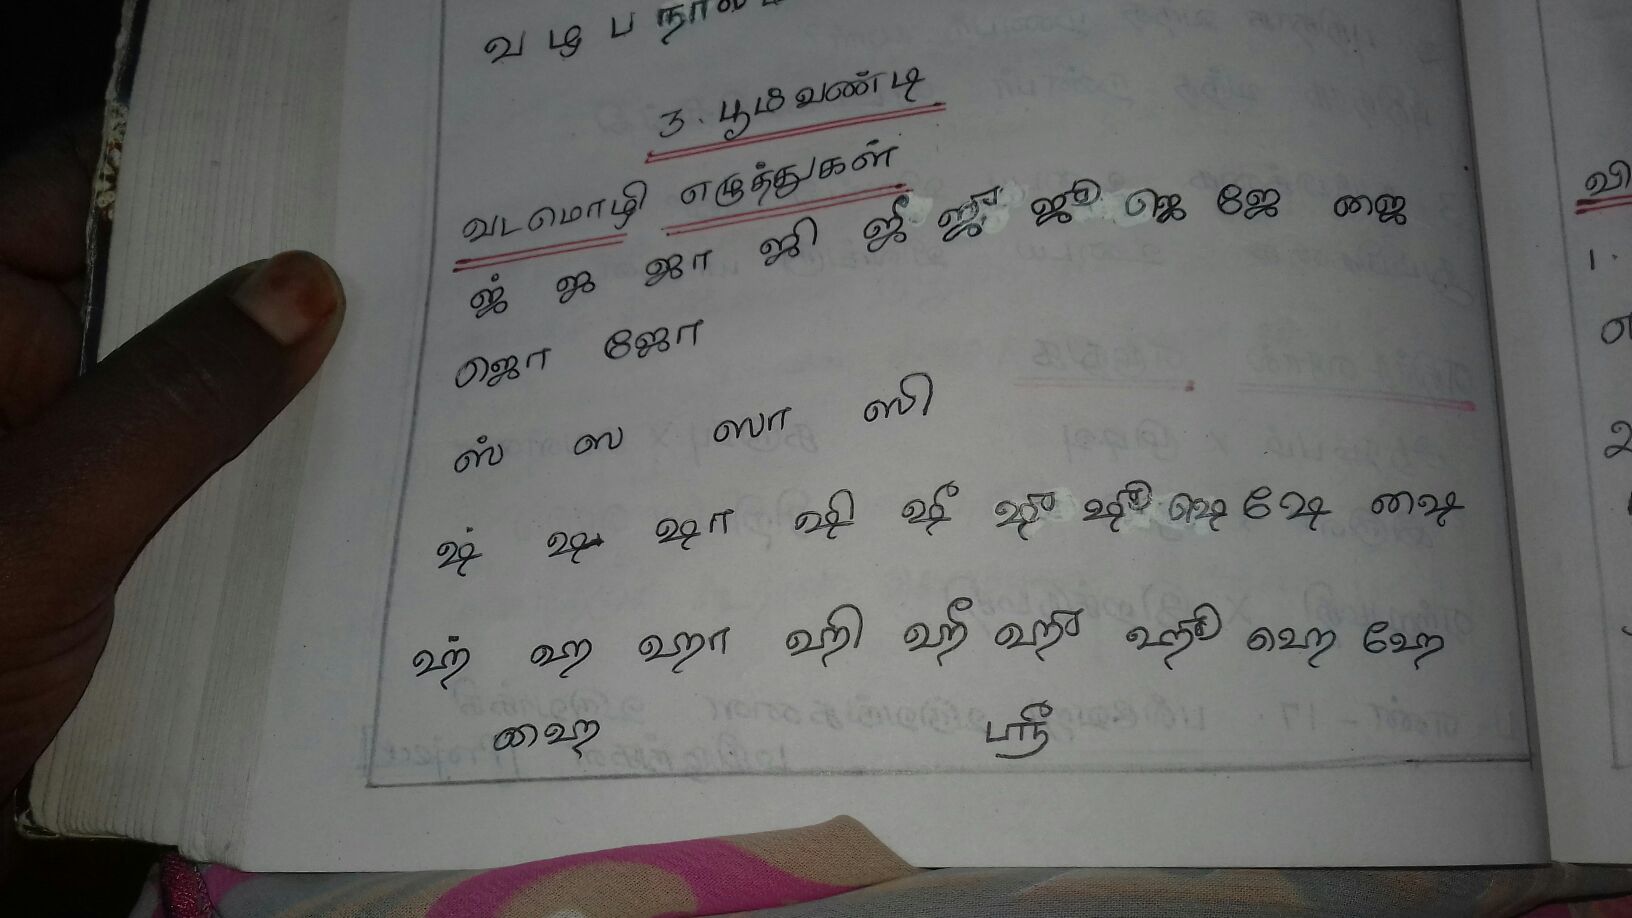 வ ழ ப
3. பூம வண்டி
வடமொழி எழுத்துகள்
ஜ் ஜ ஜா ஜி ஜீ ஜு ஜூ ஜெ ஜே ஜை
ஜொ ஜோ
ஸ் ஸ ஸா ஸி
ஷ் ஷ ஷா ஷி ஷீ ஷு ஷூ ஷெ ஷே ஷை
ஹ் ஹ ஹா ஹி ஹீ ஹு ஹூ ஹெ ஹே
ஹை ஸ்ரீ
வி
1.